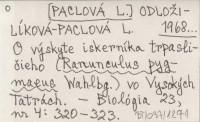 o [PACLOVÁ L.] ODLOŽI-
LÍKOVÁ-PACLOVÁ L. 1968...
O výskyte iskerníka trpasli-
čieho (Ranunculus pyg-
maeus Wahlbg.) vo Vysokých
Tatrách. – Biológia 23,
nr 4: 320-323.